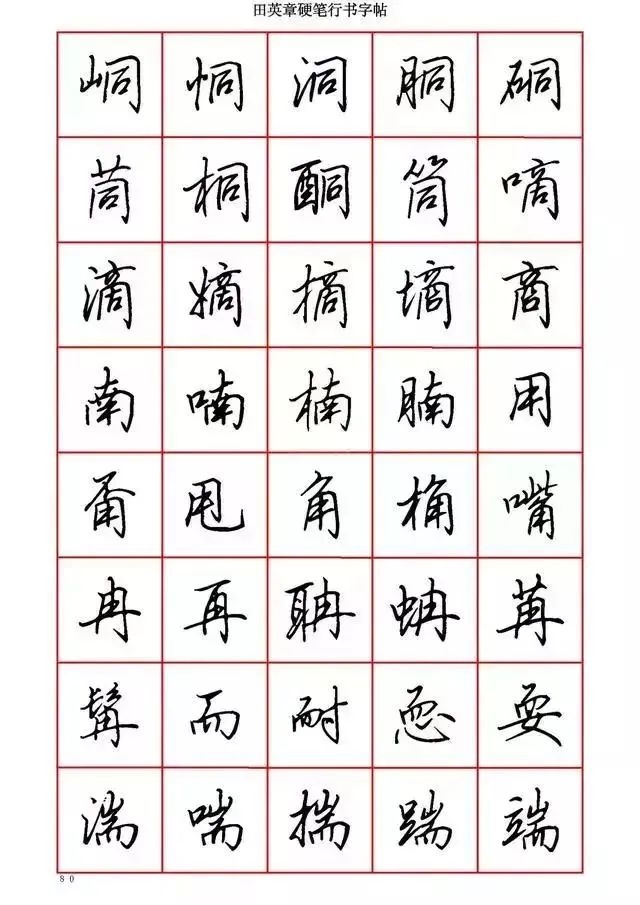 田英章硬笔行书字帖
峒 恫 洞 胴 硐
茼 桐 酮 筒 嘀
滴 嫡 摘 墒 商
南 喃 楠 腩 用
甭 甩 角 桷 嘴
冉 再 聃 蚺 苒
髯 而 耐 恧 耍
湍 喘 揣 踹 端
80